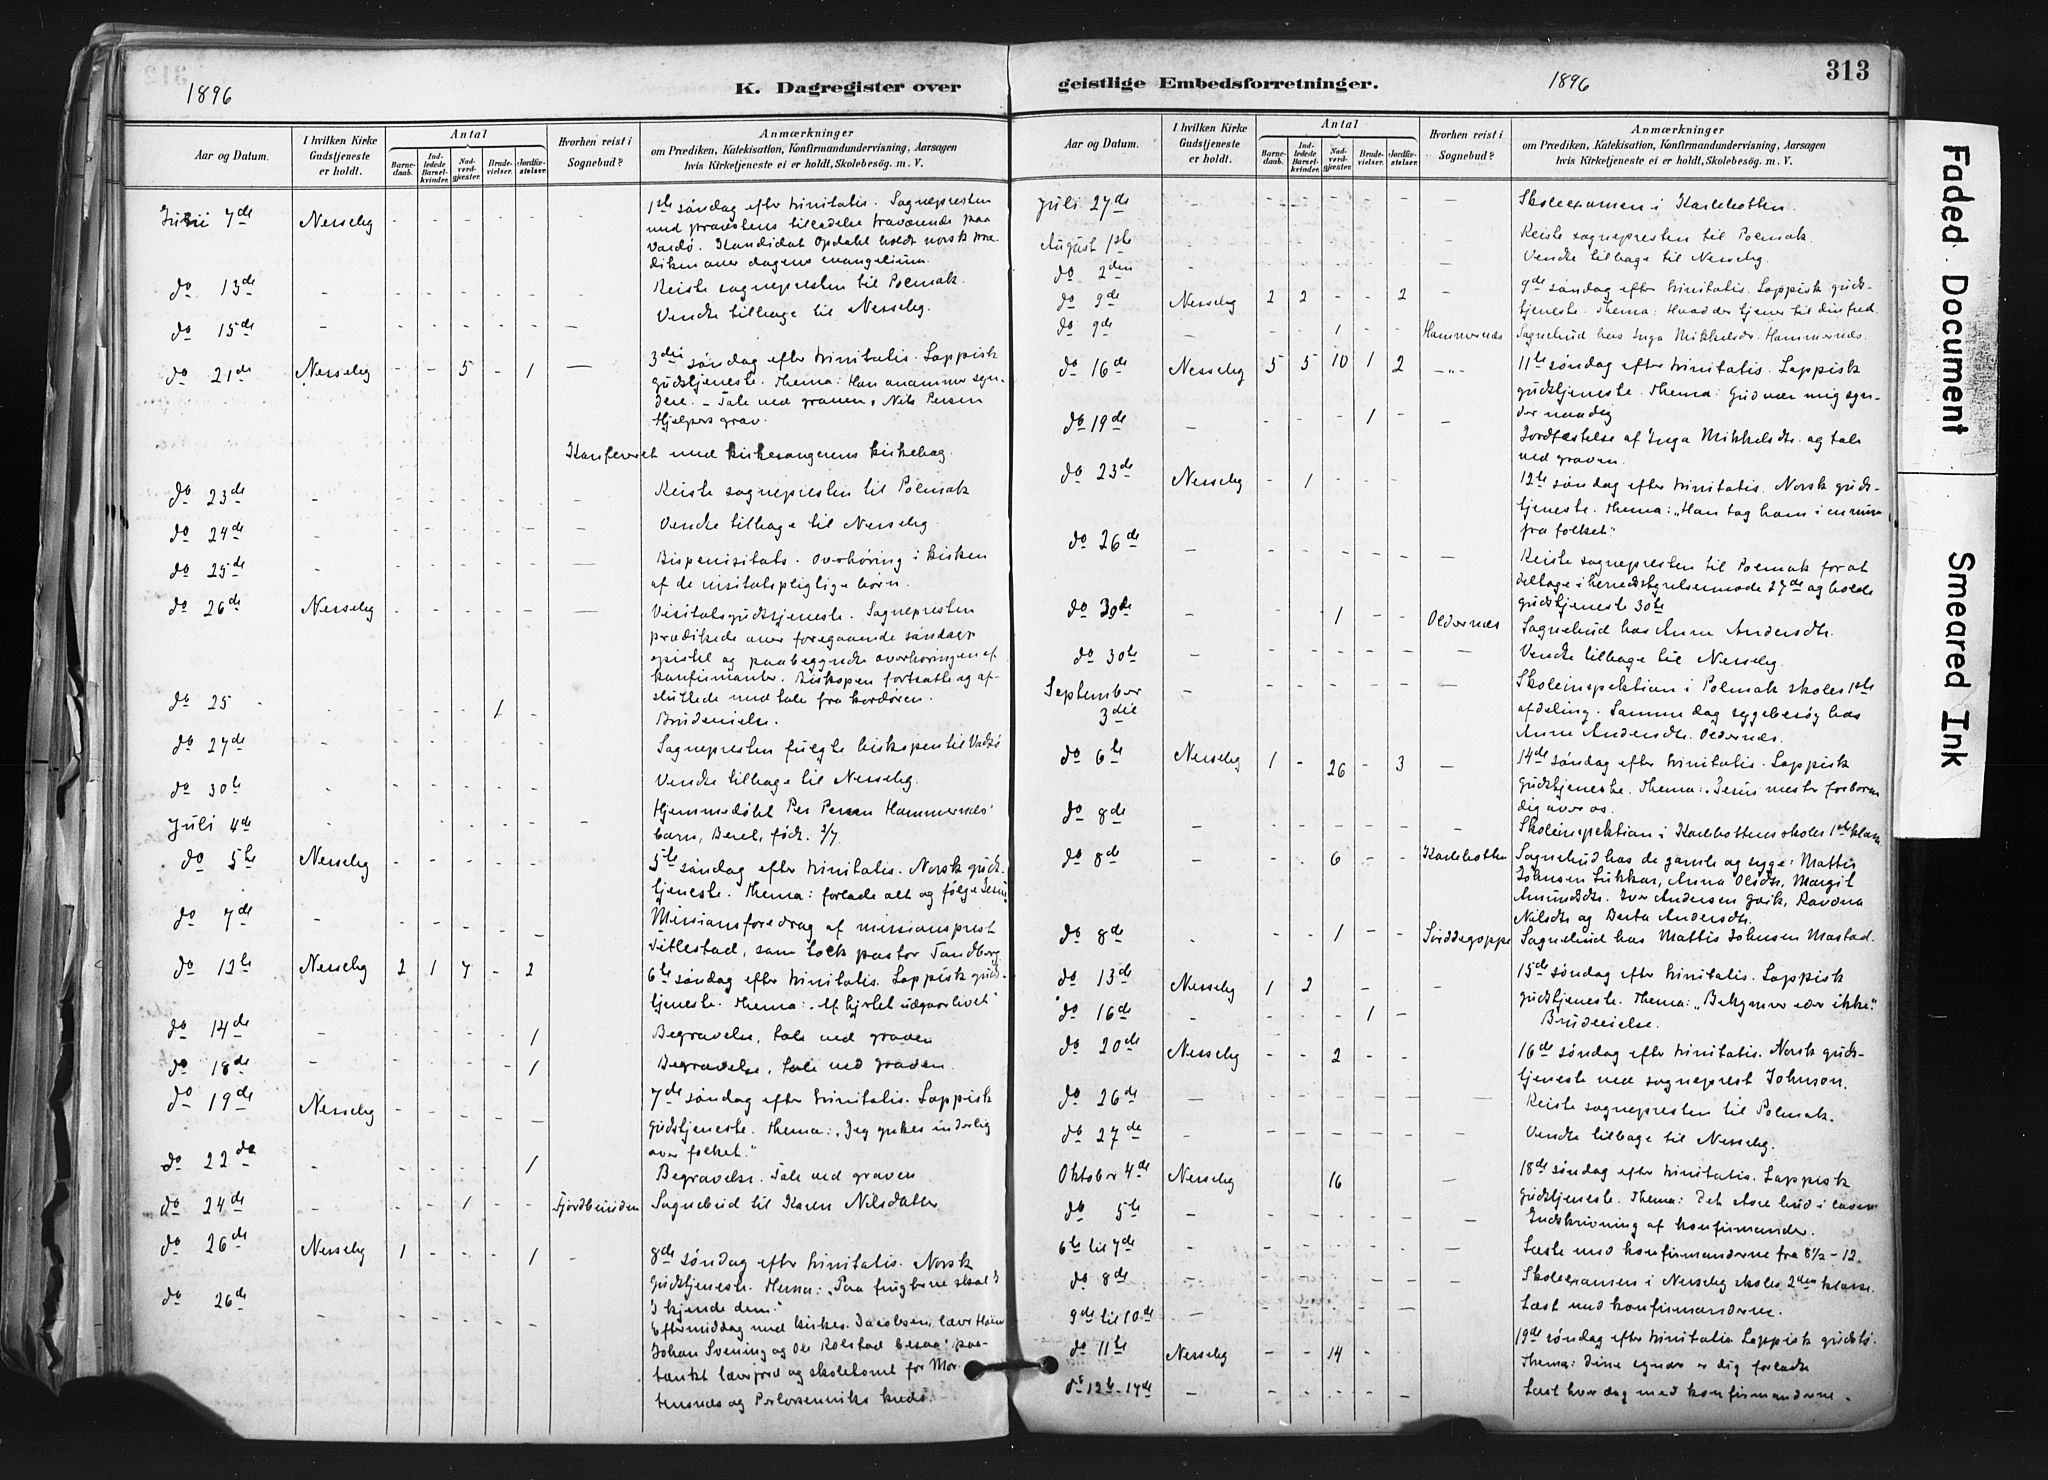 1896
K. Dagregister over
Aar og Datum.
I hvilken Kirke Gudstjeneste er holdt.
Antal
Barnedaab.
Indledede Barselkvinder.
Nadverdgjæster.
Brudevielser.
Jordfæstelser.
Hvorhen reist i Sognebud?
Anmærkninger
om Prædiken, Katekisation, Konfirmandundervisning, Aarsagen
hvis Kirketjeneste ei er holdt, Skolebesøg. m. V.
Juni 7de Nesseby - - - - - 1ste søndag efter trinitatis. Sognepresten
med provstens tilladelse fraværende paa
Vardø. Kandidat Opdahl holdt norsk præ-
diken over dagens evangelium.
do 13de - - - - - - Reiste sognepresten til Polmak.
do 15de - - - - - - - Vendte tilbage til Nesseby.
do 21de Nesseby - - 5 - 1 - 3die søndag efter trinitatis. Lappisk
gudstjeneste. Thema: Han anammer syn-
dere. - Tale ved graven, Nils Persen
Hjelpers grav.
Konfereret med kirkesangerens kirkebog.
do 23de - - - - - - - Reiste sognepresten til Polmak
do 24de - - - - - - - Vendte tilbage til Nesseby
do 25de - - - - - - - Bispevisitats. Overhøring i kirken
af de visitatspligtige børn.
do 26de Nesseby - - - - - - Visitatsgudstjeneste. Sognepresten
prædikede over foregaaende søndags
epistel og paabegyndte overhøringen af
konfirmanter. Biskopen fortsatte og af-
sluttede med tale fra kordøren.
do 25 - - - - 1 - Brudevielse.
do 27de - - - - - - Sognepresten fulgte biskopen til Vadsø
do 30te - - - - - - Vendte tilbage til Nesseby.
Juli 4de - - - - - - - Hjemmedøbt Per Persen Hammernæs'
barn, Berel, født. 3/7
do 5te Nesseby - - - - - 5te søndag efter trinitatis. Norsk guds-
tjeneste. Thema: forlade alt og følge Jesus
do 7de - - - - - - Missionsforedrag af missionsprest
Vetlestad, som Lock pastor Sandberg
do 12te Nesseby 2 1 7 - 2 6te søndag efter trinitatis. Lappisk guds-
tjeneste. Thema: "Af hjertet udgaar livet"
do 14de - - - - - 1 Begravelse, tale ved graven
do 18de - - - - - 1 Begravelse, tale ved graven.
do 19de Nesseby - - - - - 7de søndag efter trinitatis. Lappisk
gudstjeneste. Thema: "Jeg ynkes inderlig
over folket."
do 22de - - - - - 1 Begravelse. Tale ved graven
do 24de - - - 1 - - Fjordbunden Sognebud til Karen Nilsdatter
do 26de Nesseby 1 - - - 1 - 8de søndag efter trinitatis. Norsk
Gudstjeneste. Thema: "Paa frugterne skal I
I kjende dem."
do 26de - - - - - - Eftermiddag med kirkes. Jacobsen, lærer
Johan Svening og Ole Kolstad besaa paa-
tænkt lærerjord og skoletomt for Mor-
tensnes og kreds.
geistlige Embedsforretninger.
1896
313
Aar og Datum.
I hvilken Kirke Gudstjeneste er holdt.
Antal
Barnedaab.
Indledede Barselkvinder.
Nadverdgjæster.
Brudevielser.
Jordfæstelser.
Hvorhen reist i Sognebud?
Anmærkninger
om Prædiken, Katekisation, Konfirmandundervisning, Aarsagen
hvis Kirketjeneste ei er holdt, Skolebesøg. m. V.
Juli 27de - - - - - - - Skoleexamen i Karlebotten.
August 1ste - - - - - - - Reiste sognepresten til Polmak.
do 2den - - - - - - - Vendte tilbage til Nesseby.
do 9de Nesseby 2 2 - - 2 - 9de søndag efter trinitatis. Lappisk guds-
tjeneste. Thema: Hvad der tjener til din fred.
do 9de - - - 1 - - Hammernæs Sognebud hos Inga Mikkelsdr. Hammernæs.
do 16de Nesseby 5 5 10 1 2 - 11te søndag efter trinitatis. Lappisk
gudstjeneste. Thema: Gud vær mig syn-
der naadig
do 19de - - - - 1 - - Jordfæstelse af Inga Mikkelsdtr. og tale
ved graven.
do 23de Nesseby - 1 - - - 12te søndag efter trinitatis. Norsk guds-
tjeneste. Thema: "Han tog ham i enrum
fra folket"
do 26de - - - - - - - Reiste sognepresten til Polmak for at
deltage i herredstyrelsesmøde 27de og holde
gudstjeneste 30te
do 30de - - - 1 - - Oldernæs Sognebud hos Anne Andersdtr.
do 30te - - - - - - - Vendte tilbage til Nesseby.
September 3die - - - - - - - Skoleinspektion i Polmak skoles 1ste
afdeling. Samme dag sygebesøg hos
Anne Andersdtr. Oldernæs.
do 6te Nesseby 1 - 26 - 3 - 14de søndag efter trinitatis. Lappisk
Gudstjeneste. Thema: "Jesus mester forbarm
dig over os.
do 8de - - - - - - - Skoleinspektion i Karlebottens skoles 1ste klasse
do 8de - - - 6 - - Karlebotten Sognebud hos de gamle og syge: Mattis
Johnsen Lukkar, Anna Olsdtr, Margit
Amundsdtr. Iver Andersen Gvik, Ravdna
Nilsdtr og Berta Andersdtr.
do 8de - - - 1 - - Sirddagoppe Sognebud hos Mattis Johnsen Mastad.
do 13de Nesseby 1 2 - - - 15de søndag efter trinitatis. Lappisk
gudstjeneste. Thema: "Bekymrer eder ikke."
do 16de - - - - 1 - Brudevielse.
do 20de Nesseby - - 2 - - 16de søndag efter trinitatis. Norsk guds-
tjeneste ved sogneprest Johnson.
do 26de - - - - - - - Reiste sognepresten til Polmak.
do 27de - - - - - - - Vendte tilbage til Nesseby.
Oktober 4de Nesseby - - 16 - 18de søndag efter trinitatis. Lappisk
gudstjeneste. Thema: Det store bud i loven
do 5te - - - - - - - Indskrivning af konfirmander.
6te til 7de - - - - - - - Læste med konfirmanderne fra 8 1/2 - 12.
do 8de - - - - - - - Skoleexamen i Nesseby skoles 2den klasse.
9de til 10de - - - - - - Læst med konfirmanderne.
do 11te Nesseby - - 14 - 19de søndag efter trinitatis Lappisk gudstj.
Thema: Dine synder er dig forladte
do 12te - 17de - - - - - - Læst hver dag med konfirmanderne.
Faded Document
Smeared Ink